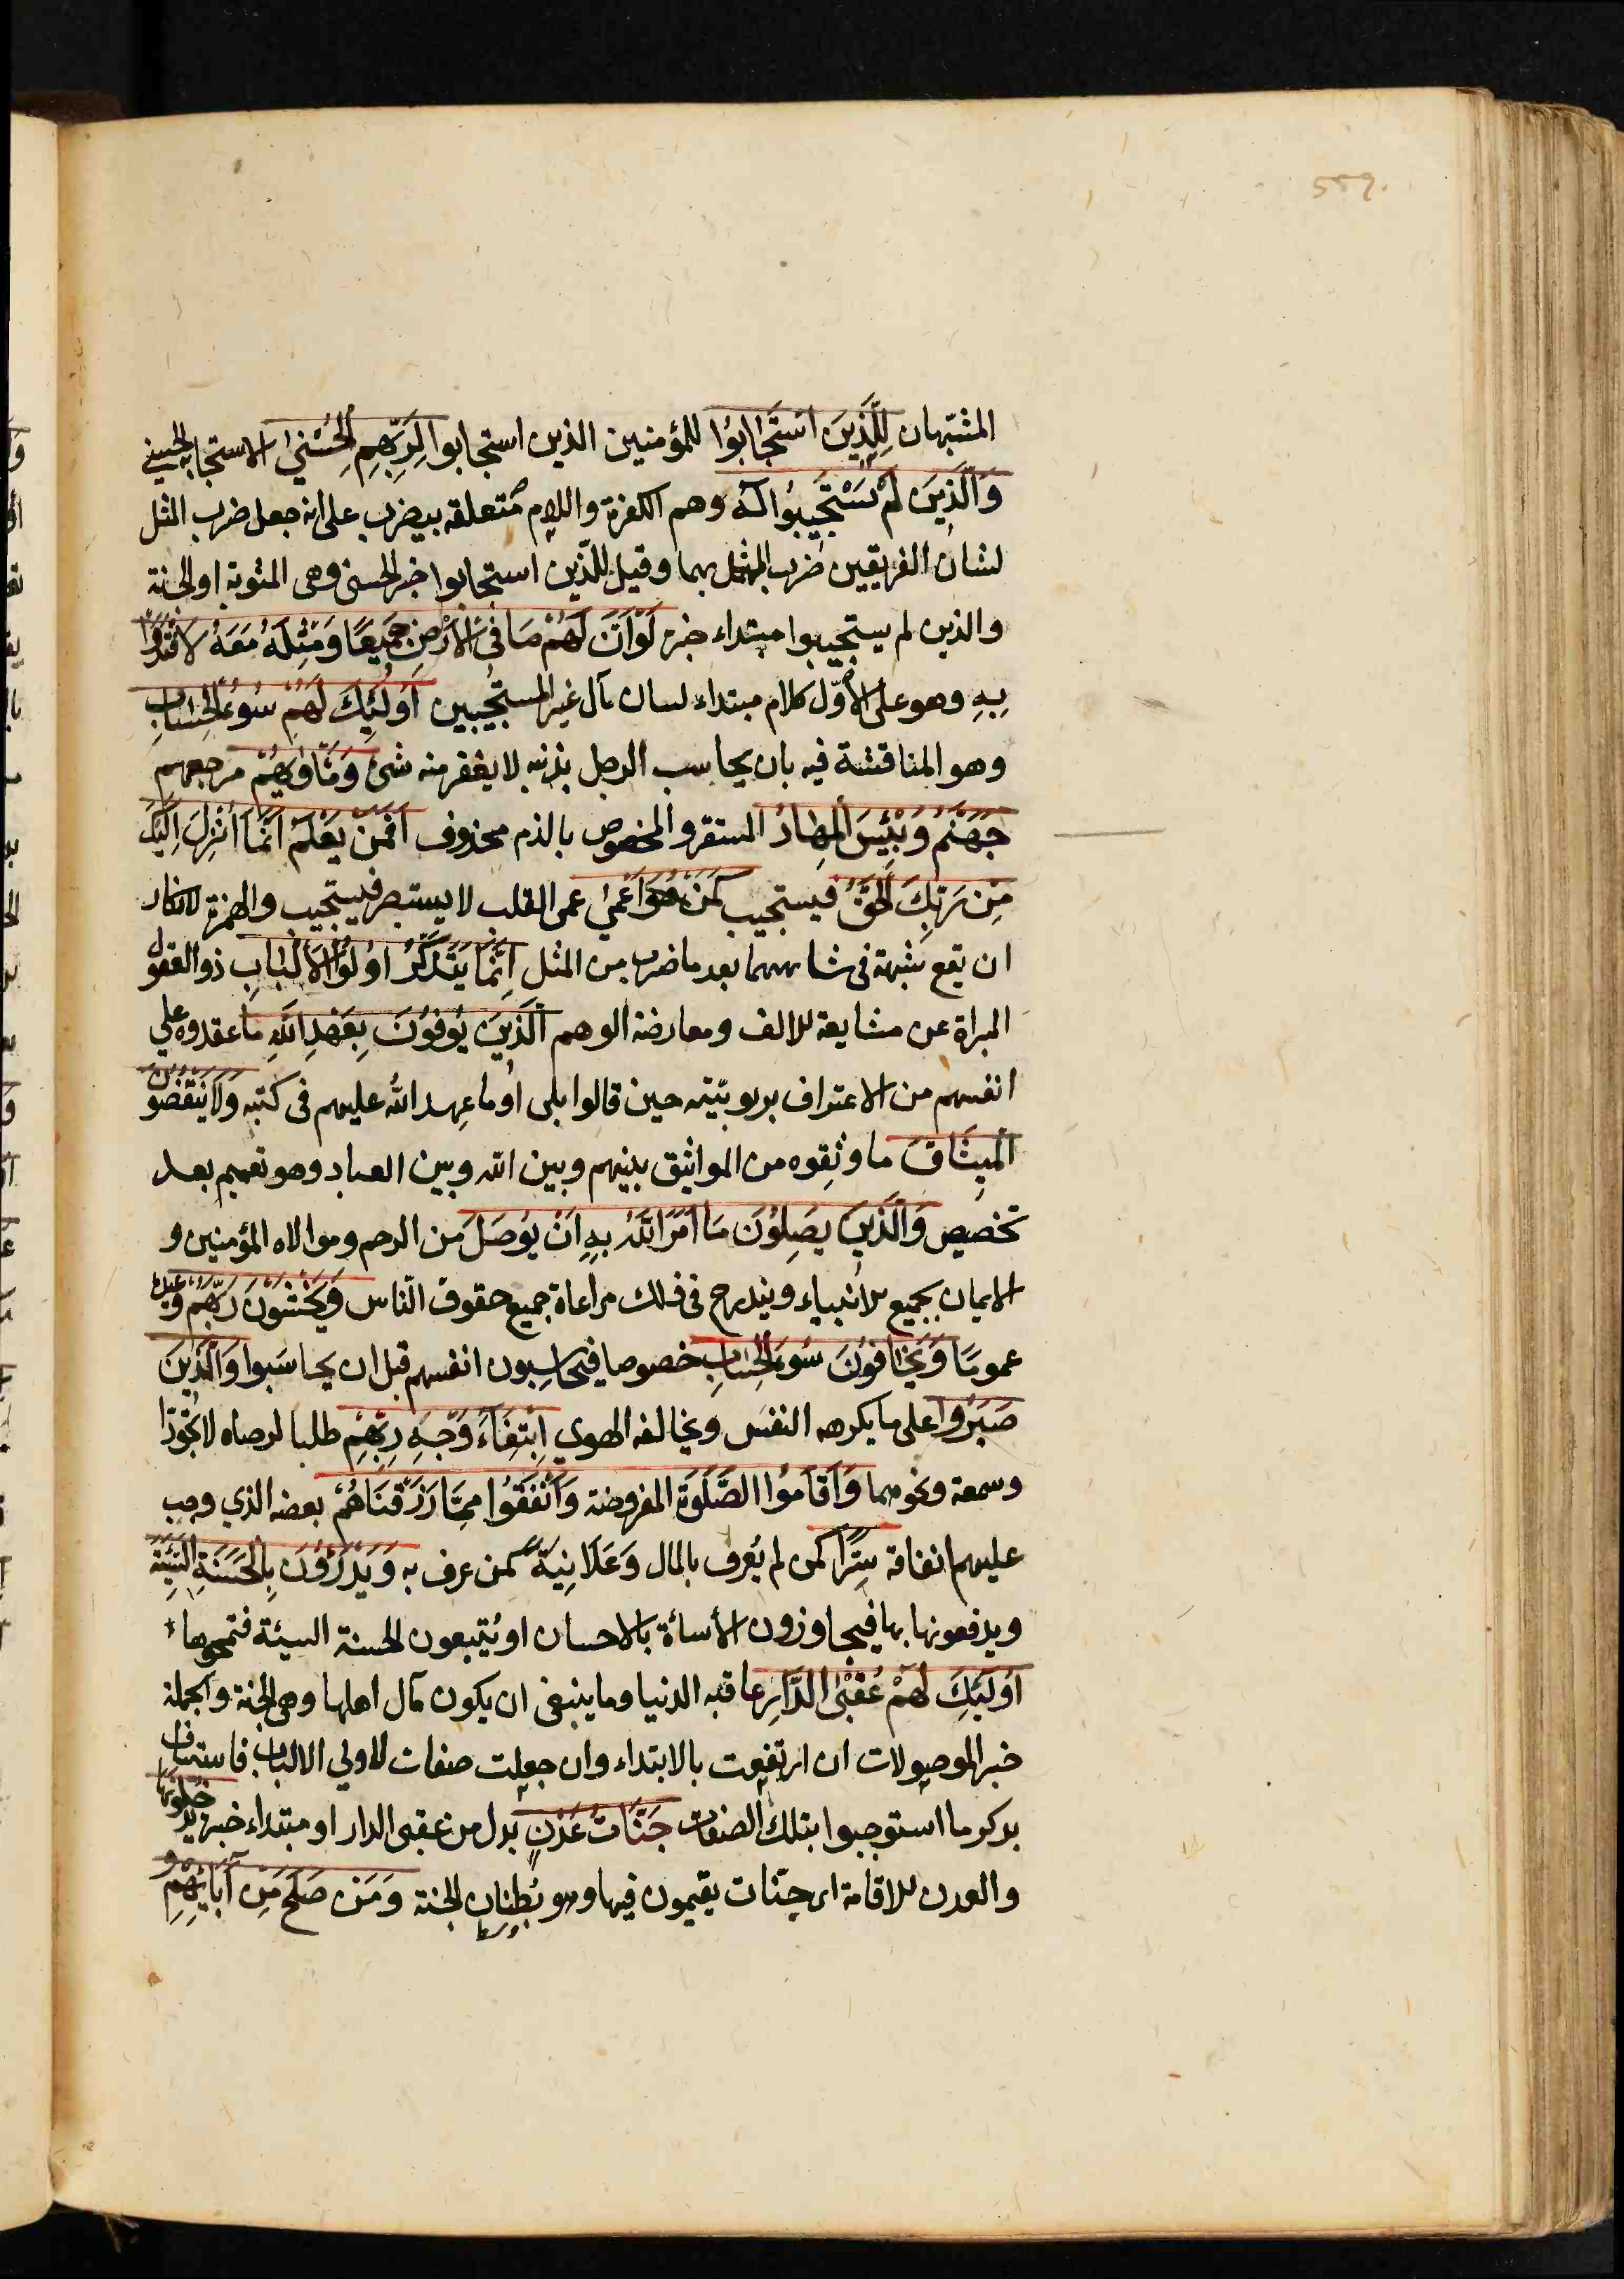 559.
المشتبهان لِلَّذِينَ اسْتَجَابُوا للمؤمنين الذين استجابوا لِرَبِّهِمِ الْحُسْنىٰ الاستجابة الحسنى
وَالَّذِينَ لَمْ يَسْتَجِيبُوا لَهُ وهم الكفرة واللام متعلقه بيضرب على انه جعل ضرب المثل
لشان الفريقين ضرب المثل بهما وقيل للذين استجابوا خبر الحسنى وهى المثوبة او الجنة
والذين لم يستجيبوا مبتداء خبره لَوْ اَنَّ لَهُمْ مَا فِى الْاَرْضِ جَمِيعًا وَمِثْلَهُ مَعَهُ لَافْتَدَوْا
بِهِ وهو على الأوّل كلام مبتداء لبيان مآل غير المستجيبين اُولٰئِكَ لَهُمْ سُوءُ الْحِسَابِ
وهو المناقشة فيه بان يحاسب الرجل بذنبه لا يغفر منه شئ وَمَأْوٰيهُمْ مرجعهم
جَهَنَّمُ وَبِئْسَ الْمِهَادُ المستقر والمخصوص بالذم محذوف اَفَمَنْ يَعْلَمُ اَنَّمَا اُنْزِلَ اِلَيْكَ
مِنْ رَبِّكَ الْحَقُّ فيستجيب كَمَنْ هُوَ اَعْمٰى عمى القلب لا يستبصر فيستجيب والهمزة لانكار
ان تقع شبهة فى تشابههما بعد ما ضرب من المثل اِنَّمَا يَتَذَكَّرُ اُولُوا الْاَلْبَابِ ذو العقول
المبراة عن مشايعة الالف ومعارضة الوهم اَلَّذِينَ يُوفُونَ بِعَهْدِ اللّٰهِ ما عقدوه على
انفسهم من الاعتراف بربوبيّته حين قالوا بلى او ما عهد الله عليهم فى كتبه وَلَا يَنْقُضُونَ
الْمِيثَاقَ ما وثقوه من المواثيق بينهم وبين الله وبين العباد وهو تعميم بعد
تخصيص وَالَّذِينَ يَصِلُونَ مَا اَمَرَ اللّٰهُ بِهِ اَنْ يُوصَلَ من الرحم وموالاه المؤمنين و
الايمان بجميع الانبياء ويندرج فى ذلك مراعاة جميع حقوق النّاس وَيَخْشَوْنَ رَبَّهُمْ وعيده
عموما وَيَخَافُونَ سُوءَ الْحِسَابِ خصوصا فيحاسبون انفسهم قبل ان يحاسبوا وَالَّذِينَ
صَبَرُوا على ما يكرهه النفس ويخالفه الهوى اِبْتِغَاءَ وَجْهِ رَبِّهِمْ طلبا لرضاه لا
وسمعة ونحوهما وَاَقَامُوا الصَّلٰوةَ المفروضة وَاَنْفَقُوا مِمَّا رَزَقْنَاهُمْ بعضه الذى وجب
عليهم انفاقه سِرًّا كمن لم يُعرف بالمال وَعَلَانِيَةً كمن عرف به وَيَدْرَؤُنَ بِالْحَسَنَةِ السَّيِّئَةَ
ويدفعونها بها فيجاوزون الأساءة بالاحسان او يُتبعون الحسنة السيئة فتمحوها
اُولٰئِكَ لَهُمْ عُقْبَى الدَّارِ عاقبة الدنيا وما ينبغى ان يكون مآل اهلها وهى الجنة والجملة
خبر الموصولات ان ارتفعت بالابتداء وان جعلت صفات لاولى الالباب فاستيناف
بذكر ما استوجبوا بتلك الصفات جَنَّاتُ عَدْنٍ بدل من عقبى الدار او مبتداء خبره يَدْخُلُونَهَا
والعدن الاقامة اى جنّات يقيمون فيها وهو بُطنان الجنة وَمَنْ صَلَحَ مِنْ اٰبَائِهِمْ وَ
وسط